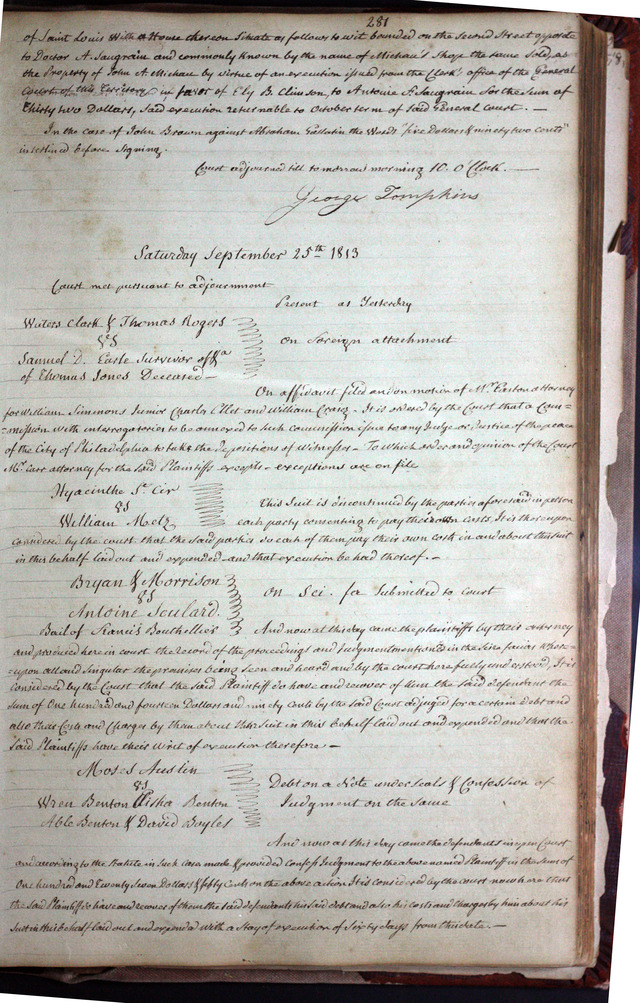 281
of Saint Louis With a House thereon Situate as follows to wit bounded on the Second Street opposite
to Doctor A. Saugrain and commonly known by the name of Michau's Shop the same Sold as
the Property of John A. Michau by virtue of an execution issued from the Clerk's office of the General
Court of this Territory in favor of Ely B. Clinson, to Antoine A Saugrain for the Sum of
Thirty two Dollars, Said execution returnable to October term of Said General Court. —
In the case of John Brown against Abraham Gallatin the Words "five Dollars & ninety two cents"
interlined before Signing.
Court adjourned till tomorrow morning 10. O'Clock. —
George Tompkins
Saturday September 25th 1813
Court met pursuant to adjournment
Present as Yesterday
Waters Clark & Thomas Rogers
vs
On foreign attachment
Samuel D. Earle Survivor of
of Thomas Jones Deceased —
On affidavit filed and on motion of Mr. Easton attorney
for William Simmons Junior Charles Ellet and William Craig. It is ordered by the Court that a Com=
=mission with interrogatories to be annexed to Such commission issue to any Judge or Justice of the peace
of the City of Philadelphia to take the depositions of witnesses — To which order and opinion of the Court
Mr. Carr attorney for the Said Plaintiffs excepts — exceptions are on file
Hyacinthe St. Cir
vs
This Suit is discontinued by the parties aforesaid in person
William Metz
each party consenting to pay their own Costs. It is thereupon
considered by the court that the Said parties do each of them pay their own costs in and about this suit
in this behalf laid out and expended and that execution be had thereof. —
Bryan & Morrison
vs
On Sci. fa Submitted to Court
Antoine Soulard.
Bail of Francis Bouthellier
And now at this day came the plaintiffs by their attorney
and produced here in court the record of the proceedings and Judgment mentioned in the Scire facias where=
=upon all and Singular the premises being Seen and heard and by the court here fully understood. It is
Considered by the Court that the Said Plaintiff do have and recover of them the Said defendant the
Sum of One hundred and fourteen Dollars and ninety Cents by the Said Court adjudged for a certain debt and
also their Costs and Charges by them about their Suit in this behalf laid out and expended and that the
Said Plaintiffs have their writ of execution therefore —
Moses Austin
vs
Debt on a Note under Seals & Confession of
Wren Benton Elisha Benton
Judgment on the Same
Able Benton & David Boyles
And now at this day came the defendants in open Court
and according to the Statute in Such case made & provided Confess Judgment to the above named Plaintiff in the Sum of
One hundred and Twenty Seven Dollars & fifty Cents on the above action It is considered by the court now here that
the Said Plaintiff do have and recover of them the Said defendants his Said debt and also his Costs and Charges by him about his
Suit in this behalf laid out and expended With a Stay of execution of Sixty days from this date. —